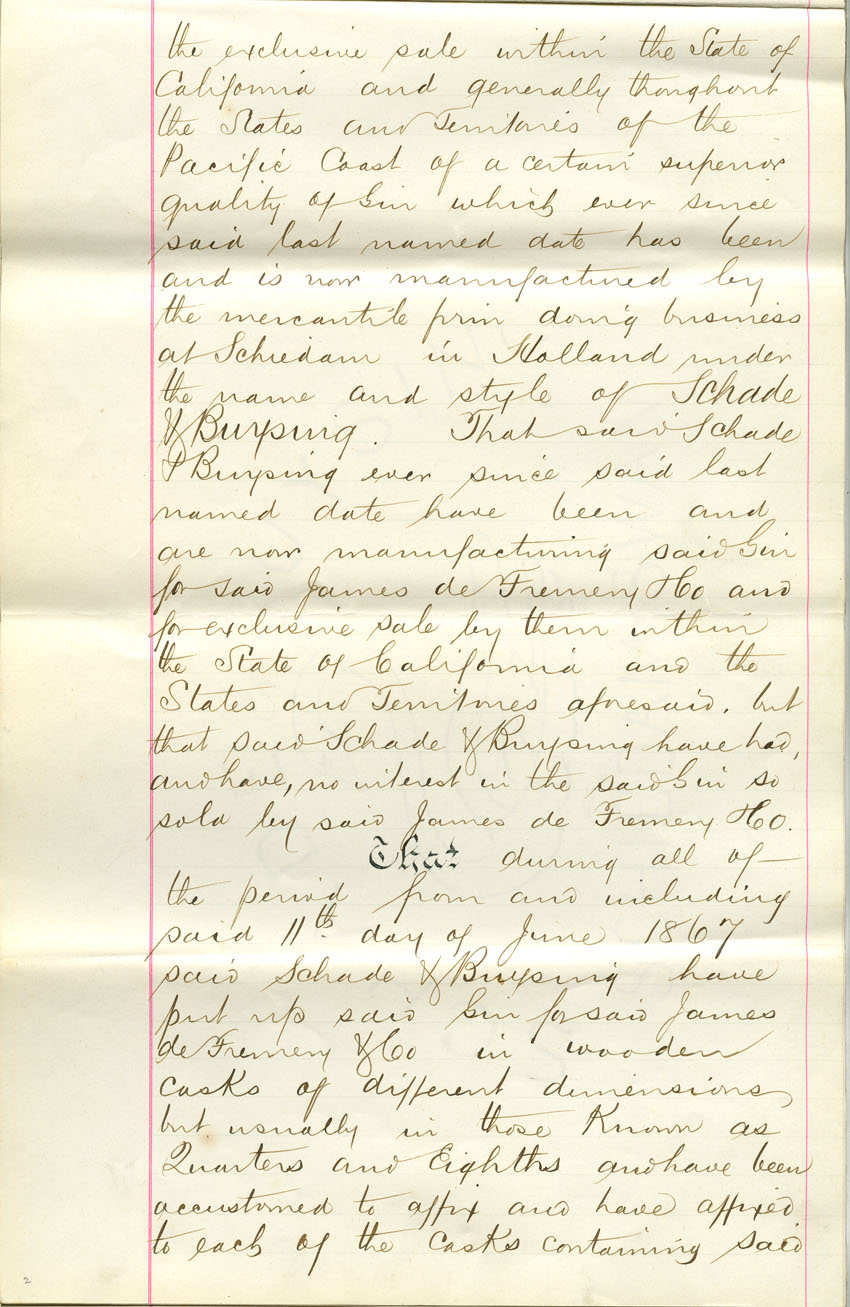 the exclusive sale within the State of
California and generally thoughout
the States and Territories of the
Pacific Coast of a certain superior
quality of Gin which ever since
said last named date has been
and is now manufactured by
the mercantile firm doing business
at Schiedam in Holland under
the name and style of Schade
& Buysing. That said Schade
& Buysing ever since said last
named date have been and
are now manufacturing said Gin
for said James de Fremery & Co and
for exclusive sale by them within
the State of California and the
States and Territories aforesaid, but
that said Schade & Buysing have had,
and have, no interest in the said Gin so
sold by said James de Fremery & Co.
That during all of
the period from and including
said 11th day of June 1867
said Schade & Buysing have
put up said Gin for said James
de Fremery & Co in wooden
casks of different dimensions,
but usually in those Known as
Quarters and Eighths and have been
accustomed to affix and have affixed
to each of the casks containing said
2